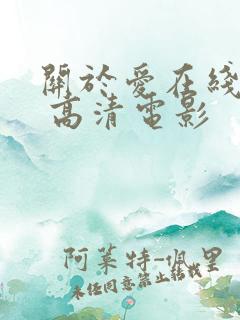 關於愛在綫
高清電影
阿萊特-佩里
未經同意禁止轉載